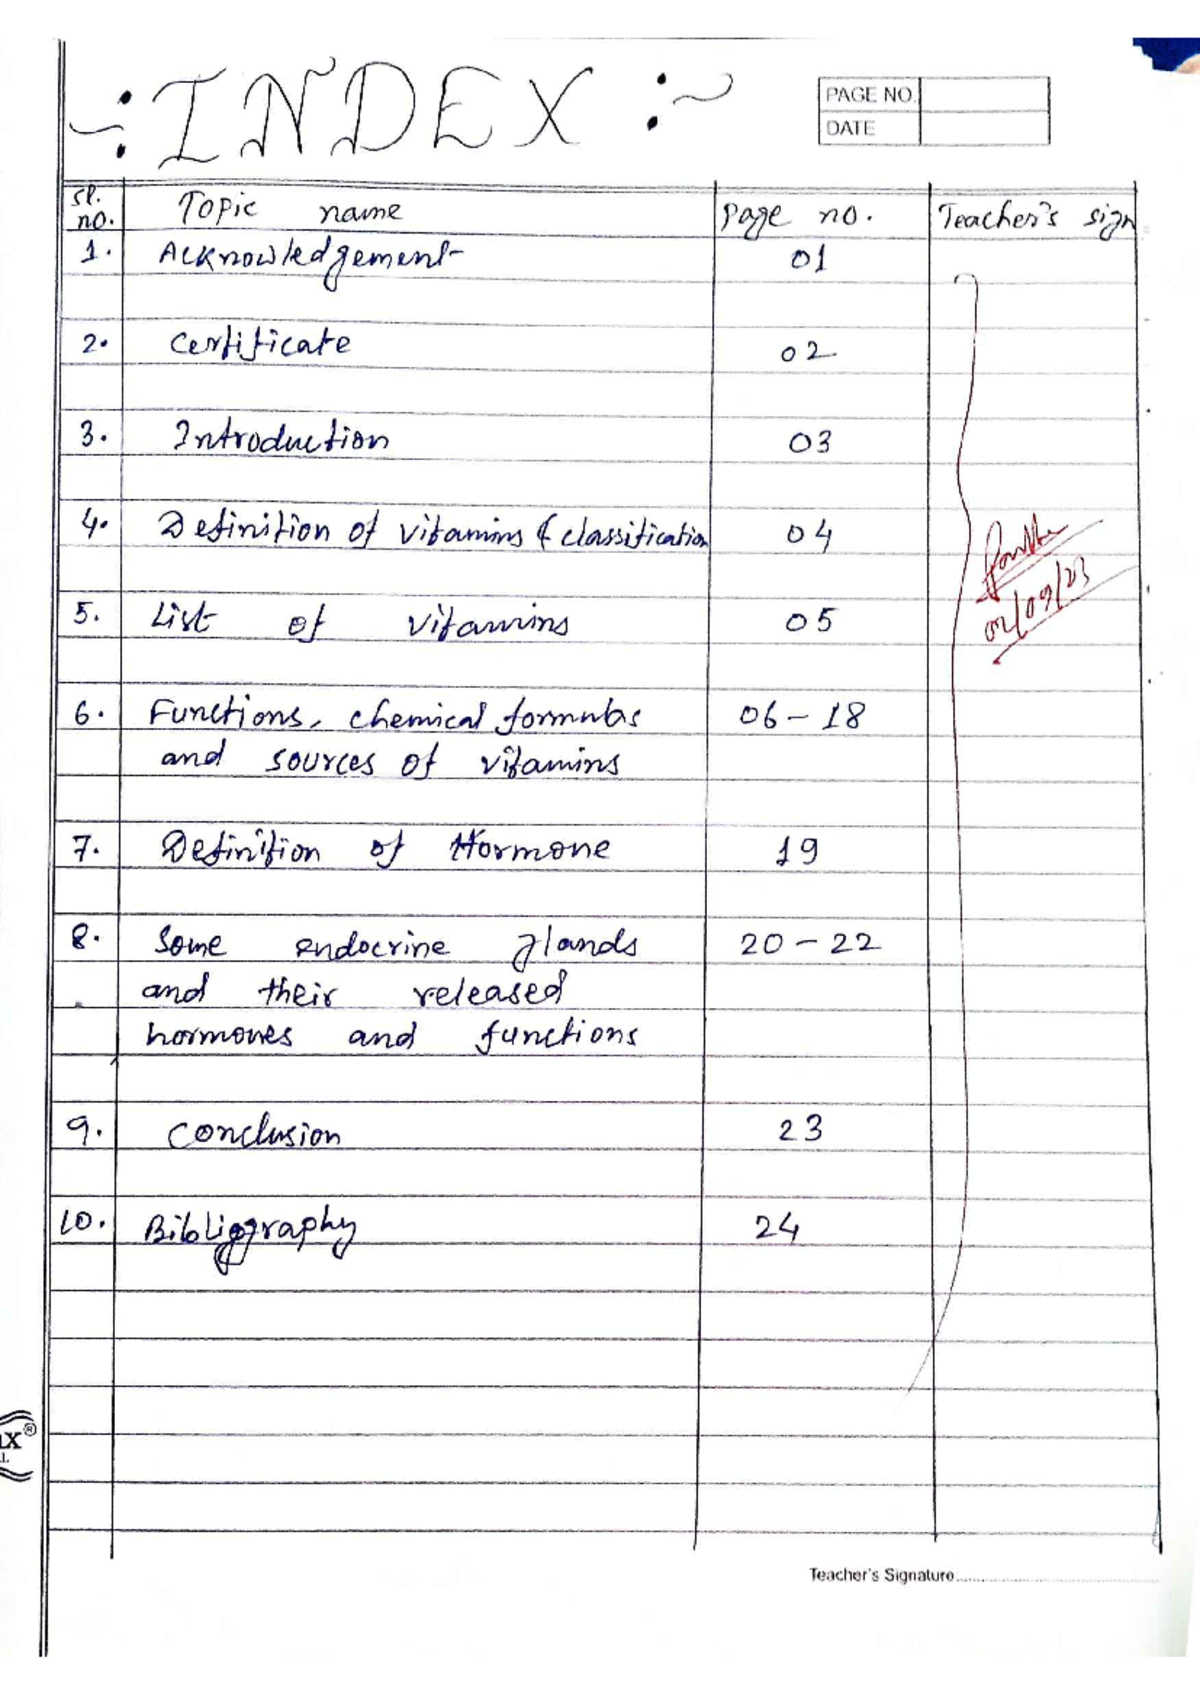 -: INDEX :-
PAGE NO.
DATE
Sl. no. Topic name Page no. Teacher's sign
1. Acknowledgement 01
2. Certificate 02
3. Introduction 03
4. Definition of vitamins & classification 04
5. List of vitamins 05
6. Functions, chemical formulas 06-18
and sources of vitamins
02/09/23
7. Definition of Hormone 19
8. Some endocrine glands 20-22
and their released
hormones and functions
9. Conclusion 23
10. Bibliography 24
Teacher's Signature